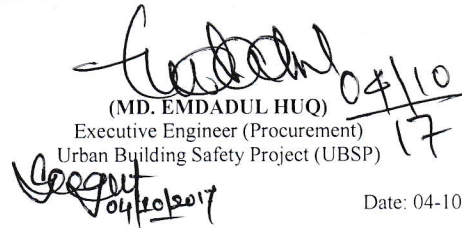 04/10
17
(MD. EMDADUL HUQ)
Executive Engineer (Procurement)
Urban Building Safety Project (UBSP)
04/10/2017
Date: 04-10